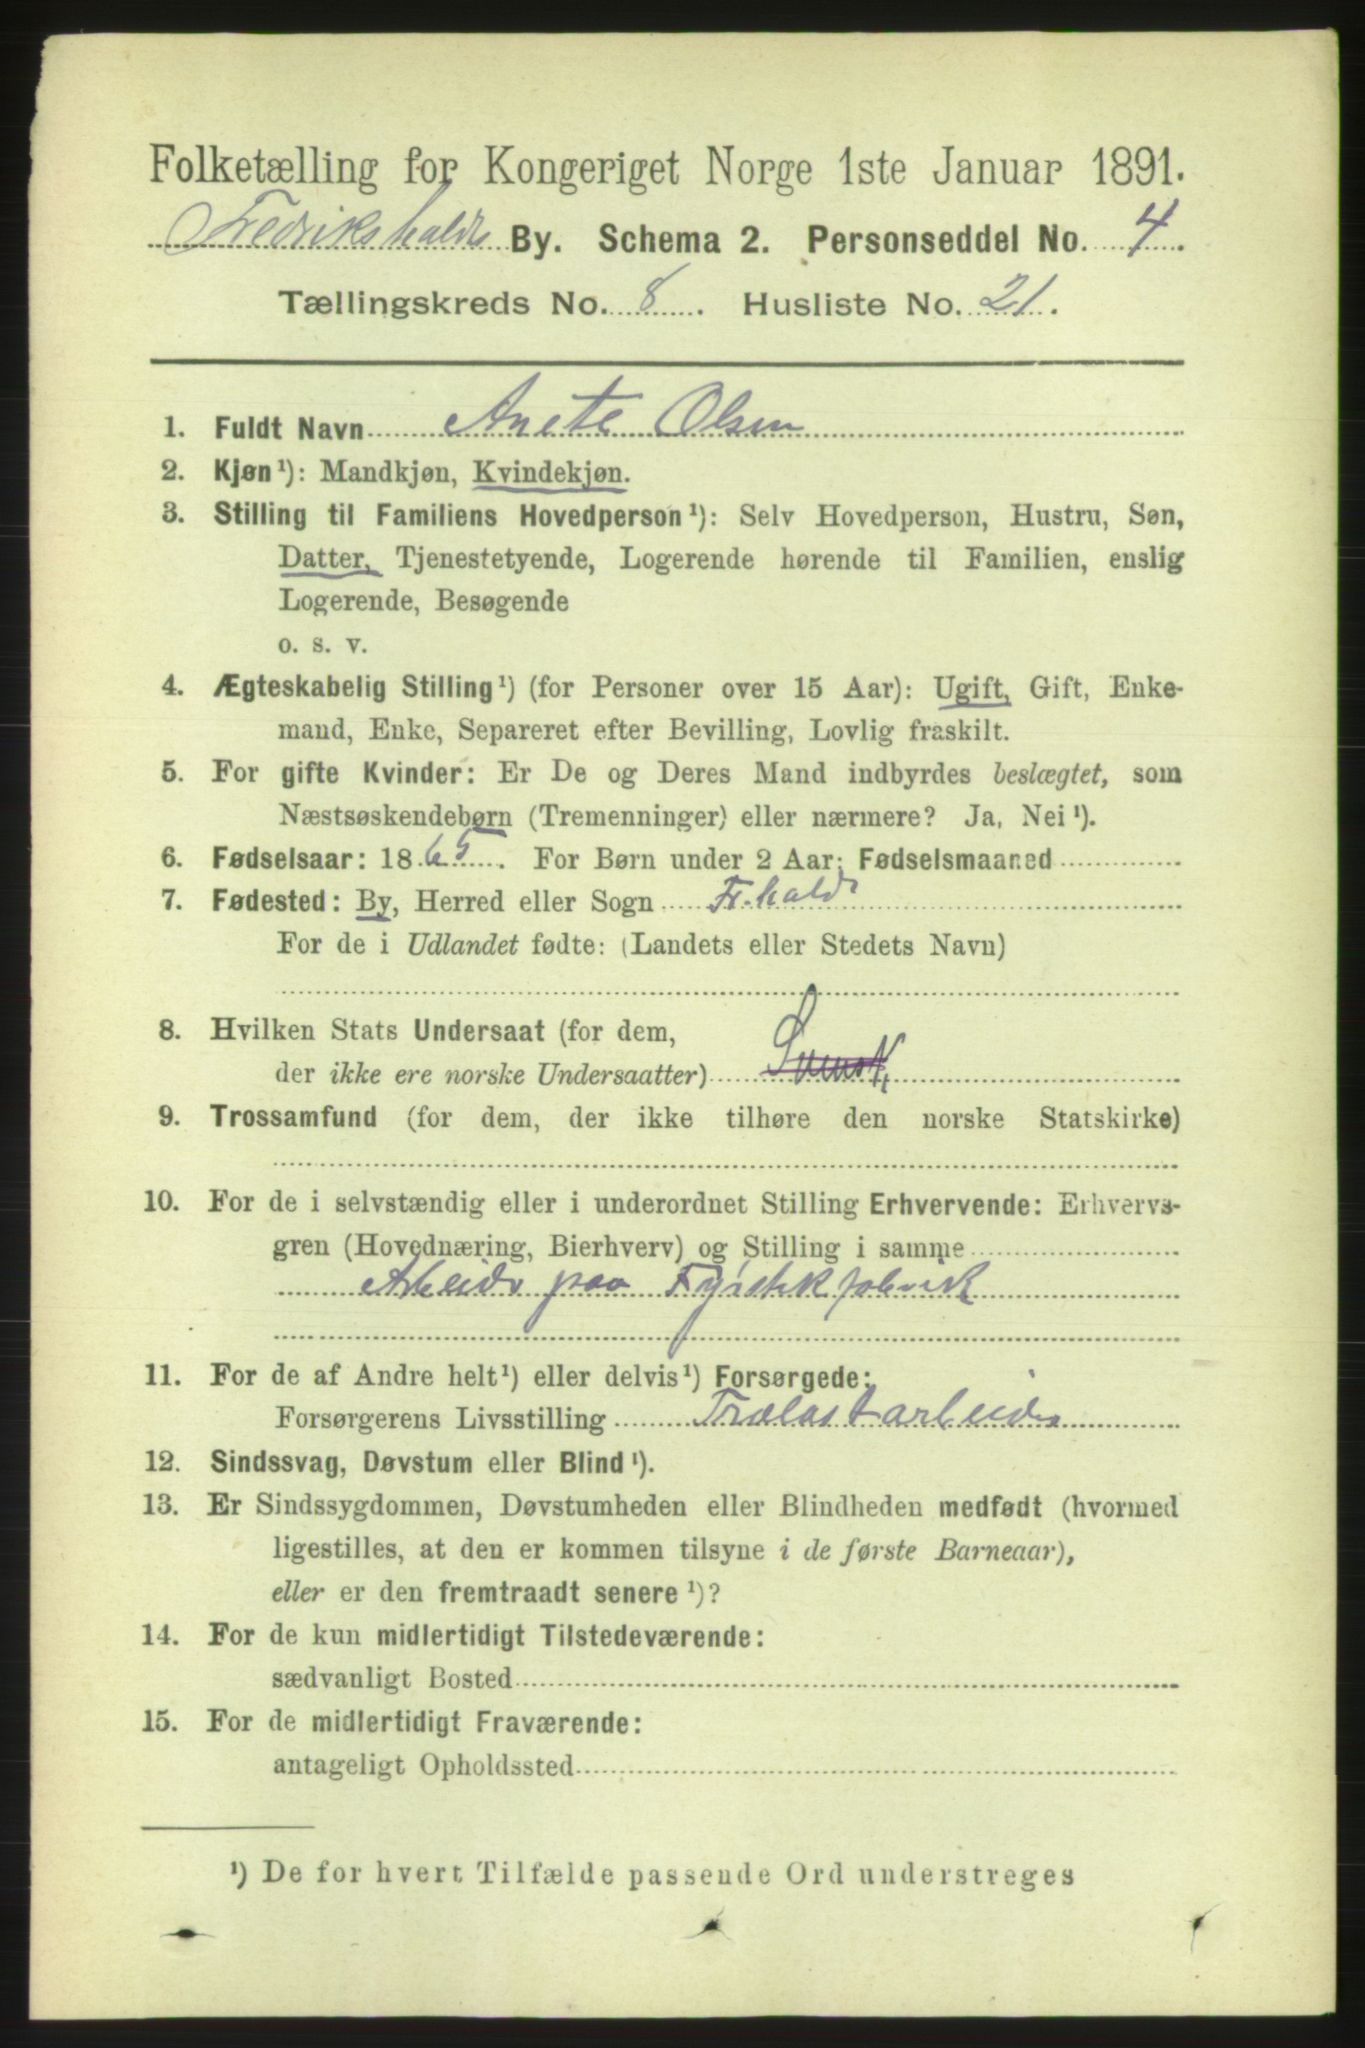 Folketælling for Kongeriget Norge 1ste Januar 1891.
Fredrikshalds By. Schema 2. Personseddel No. 4.
Tællingskreds No. 8. Husliste No. 21.
1. Fuldt Navn Anete Olsen
2. Kjøn¹): Mandkjøn, Kvindekjøn.
3. Stilling til Familiens Hovedperson¹): Selv Hovedperson, Hustru, Søn,
Datter, Tjenestetyende, Logerende hørende til Familien, enslig
Logerende, Besøgende
o. s. v.
4. Ægteskabelig Stilling¹) (for Personer over 15 Aar): Ugift, Gift, Enke-
mand, Enke, Separeret efter Bevilling, Lovlig fraskilt.
5. For gifte Kvinder: Er De og Deres Mand indbyrdes beslægtet, som
Næstsøskendebørn (Tremenninger) eller nærmere? Ja, Nei¹).
6. Fødselsaar: 1865. For Børn under 2 Aar: Fødselsmaaned
7. Fødested: By, Herred eller Sogn Fr.hald
For de i Udlandet fødte: (Landets eller Stedets Navn)
8. Hvilken Stats Undersaat (for dem,
der ikke ere norske Undersaatter) Svensk
9. Trossamfund (for dem, der ikke tilhøre den norske Statskirke)
10. For de i selvstændig eller i underordnet Stilling Erhvervende: Erhvervs-
gren (Hovednæring, Bierhverv) og Stilling i samme
Arbeider paa Fyrstikfabrik
11. For de af Andre helt¹) eller delvis¹) Forsørgede:
Forsørgerens Livsstilling Trælastarbeider
12. Sindssvag, Døvstum eller Blind¹).
13. Er Sindssygdommen, Døvstumheden eller Blindheden medfødt (hvormed
ligestilles, at den er kommen tilsyne i de første Barneaar),
eller er den fremtraadt senere¹)?
14. For de kun midlertidigt Tilstedeværende:
sædvanligt Bosted
15. For de midlertidigt Fraværende:
antageligt Opholdssted
¹) De for hvert Tilfælde passende Ord understreges